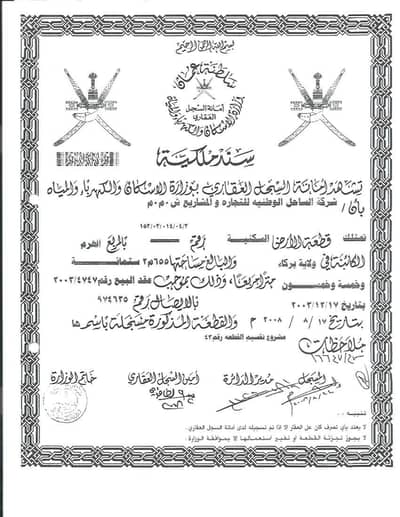 بسم الله الرحمن الرحيم
سلطنة عمان
وزارة الإسكان والكهرباء والمياه
أمانة السجل
العقاري
سند ملكية
تشهد أمانة السجل العقاري بوزارة الإسكان والكهرباء والمياه
بأن / شركة الساحل الوطنيه للتجاره و المشاريع ش٠م٠م
١٥٢/٠٢/٠١٤/٠٤/٢
تمتلك قطعة الأرض السكنية رقم بالمربع الهرم
الكائنة في ولاية بركاء والبالغ مساحتها ٦٥٥م٢ ستمائة
وخمسة وخمسون مترا مربعا، وذلك بموجب عقد البيع رقم ٢٠٠٣/٤٧٤٧
بتاريخ ٢٠٠٣/١٢/١٧ بالايصال رقم ٩٧٤٦٣٥
بتاريخ ١٧ / ٨ / ٢٠٠٨ م والقطعة المذكورة مسجلة باسمها
ملاحظات مشروع تقسيم القطعه رقم ٤٣
المسجل مدير الدائرة أمين السجل العقاري خاتم الوزارة
تنبيه ..
لا يعتد بأي تصرف كان على العقار إلا إذا تم تسجيله لدى أمانة السجل العقاري .
لا يجوز تجزئة القطعة أو تغيير استعمالها إلا بموافقة الوزارة .